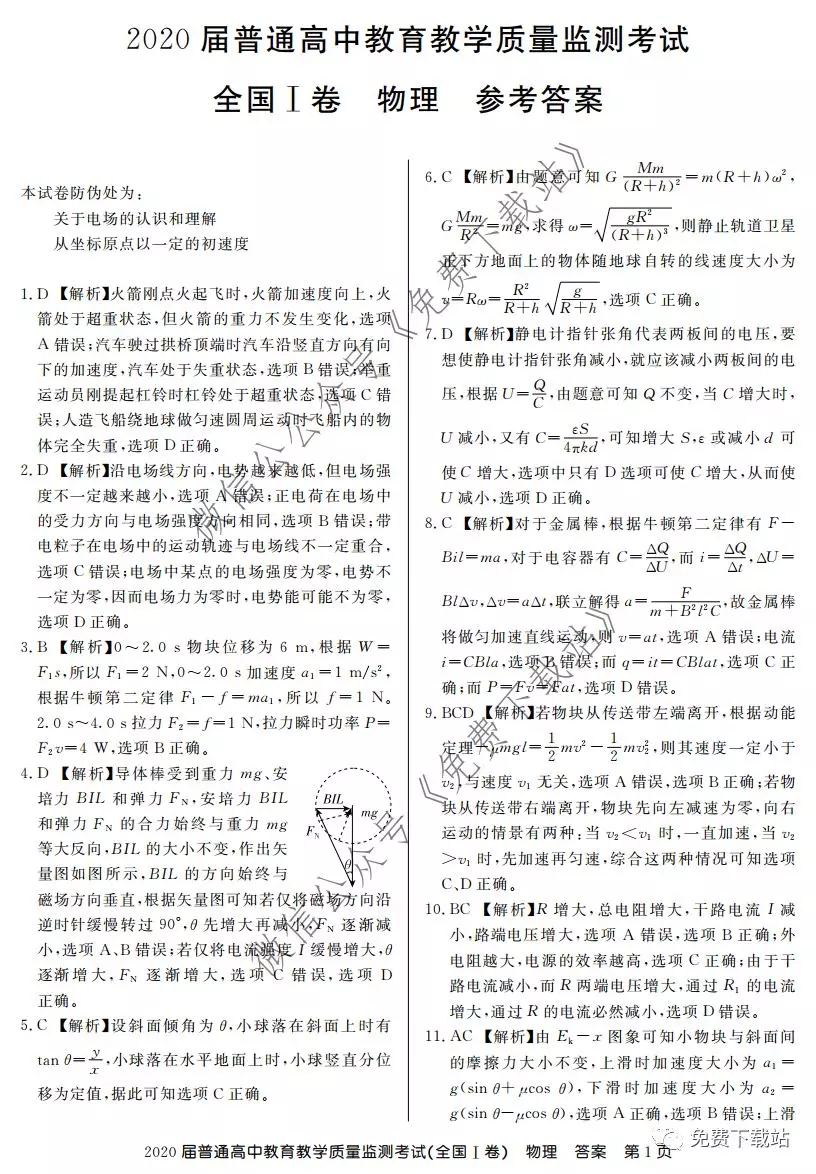 2020 届普通高中教育教学质量监测考试
全国 Ⅰ 卷 物理 参考答案
本试卷防伪处为:
关于电场的认识和理解
从坐标原点以一定的初速度
1. D 【解析】火箭刚点火起飞时,火箭加速度向上,火
箭处于超重状态,但火箭的重力不发生变化,选项
A 错误;汽车驶过拱桥顶端时汽车沿竖直方向有向
下的加速度,汽车处于失重状态,选项 B 错误;举重
运动员刚提起杠铃时杠铃处于超重状态,选项 C 错
误;人造飞船绕地球做匀速圆周运动时飞船内的物
体完全失重,选项 D 正确。
2. D 【解析】沿电场线方向,电势越来越低,但电场强
度不一定越来越小,选项 A 错误;正电荷在电场中
的受力方向与电场强度方向相同,选项 B 错误;带
电粒子在电场中的运动轨迹与电场线不一定重合,
选项 C 错误;电场中某点的电场强度为零,电势不
一定为零,因而电场力为零时,电势能可能不为零,
选项 D 正确。
3. B 【解析】0～2.0 s 物块位移为 6 m,根据 W=
F₁s,所以 F₁=2 N,0～2.0 s 加速度 a₁=1 m/s²,
根据牛顿第二定律 F₁-f=ma₁,所以 f=1 N。
2.0 s～4.0 s 拉力 F₂=f=1 N,拉力瞬时功率 P=
F₂v=4 W,选项 B 正确。
4. D 【解析】导体棒受到重力 mg、安
培力 BIL 和弹力 F_N,安培力 BIL
和弹力 F_N 的合力始终与重力 mg
等大反向,BIL 的大小不变,作出矢
量图如图所示,BIL 的方向始终与
磁场方向垂直,根据矢量图可知若仅将磁场方向沿
逆时针缓慢转过 90°,θ 先增大再减小,F_N 逐渐减
小,选项 A、B 错误;若仅将电流强度 I 缓慢增大,θ
逐渐增大,F_N 逐渐增大,选项 C 错误,选项 D
正确。
BIL
mg
F_N
θ
5. C 【解析】设斜面倾角为 θ,小球落在斜面上时有
tan θ=y/x,小球落在水平地面上时,小球竖直分位
移为定值,据此可知选项 C 正确。
6. C 【解析】由题意可知 G Mm/(R+h)²=m(R+h)ω²,
G Mm/R²=mg,求得 ω=√(gR²/(R+h)³),则静止轨道卫星
正下方地面上的物体随地球自转的线速度大小为
v=Rω=R²/(R+h) √(g/(R+h)),选项 C 正确。
7. D 【解析】静电计指针张角代表两板间的电压,要
想使静电计指针张角减小,就应该减小两板间的电
压,根据 U=Q/C,由题意可知 Q 不变,当 C 增大时,
U 减小,又有 C=εS/4πkd,可知增大 S,ε 或减小 d 可
使 C 增大,选项中只有 D 选项可使 C 增大,从而使
U 减小,选项 D 正确。
8. C 【解析】对于金属棒,根据牛顿第二定律有 F-
Bil=ma,对于电容器有 C=ΔQ/ΔU,而 i=ΔQ/Δt,ΔU=
BlΔv,Δv=aΔt,联立解得 a=F/(m+B²l²C),故金属棒
将做匀加速直线运动,则 v=at,选项 A 错误;电流
i=CBla,选项 B 错误;而 q=it=CBlat,选项 C 正
确;而 P=Fv=Fat,选项 D 错误。
9. BCD 【解析】若物块从传送带左端离开,根据动能
定理-μmgl=1/2 mv²-1/2 mv₂²,则其速度一定小于
v₂,与速度 v₁ 无关,选项 A 错误,选项 B 正确;若物
块从传送带右端离开,物块先向左减速为零,向右
运动的情景有两种:当 v₂<v₁ 时,一直加速,当 v₂
>v₁ 时,先加速再匀速,综合这两种情况可知选项
C、D 正确。
10. BC 【解析】R 增大,总电阻增大,干路电流 I 减
小,路端电压增大,选项 A 错误,选项 B 正确;外
电阻越大,电源的效率越高,选项 C 正确;由于干
路电流减小,而 R 两端电压增大,通过 R₁ 的电流
增大,通过 R 的电流必然减小,选项 D 错误。
11. AC 【解析】由 E_k-x 图象可知小物块与斜面间
的摩擦力大小不变,上滑时加速度大小为 a₁=
g(sin θ+μcos θ),下滑时加速度大小为 a₂=
g(sin θ-μcos θ),选项 A 正确,选项 B 错误;上滑
2020 届普通高中教育教学质量监测考试(全国 Ⅰ 卷) 物理 答案 第 1 页
微信公众号《免费下载站》
微信公众号《免费下载站》
免费下载站